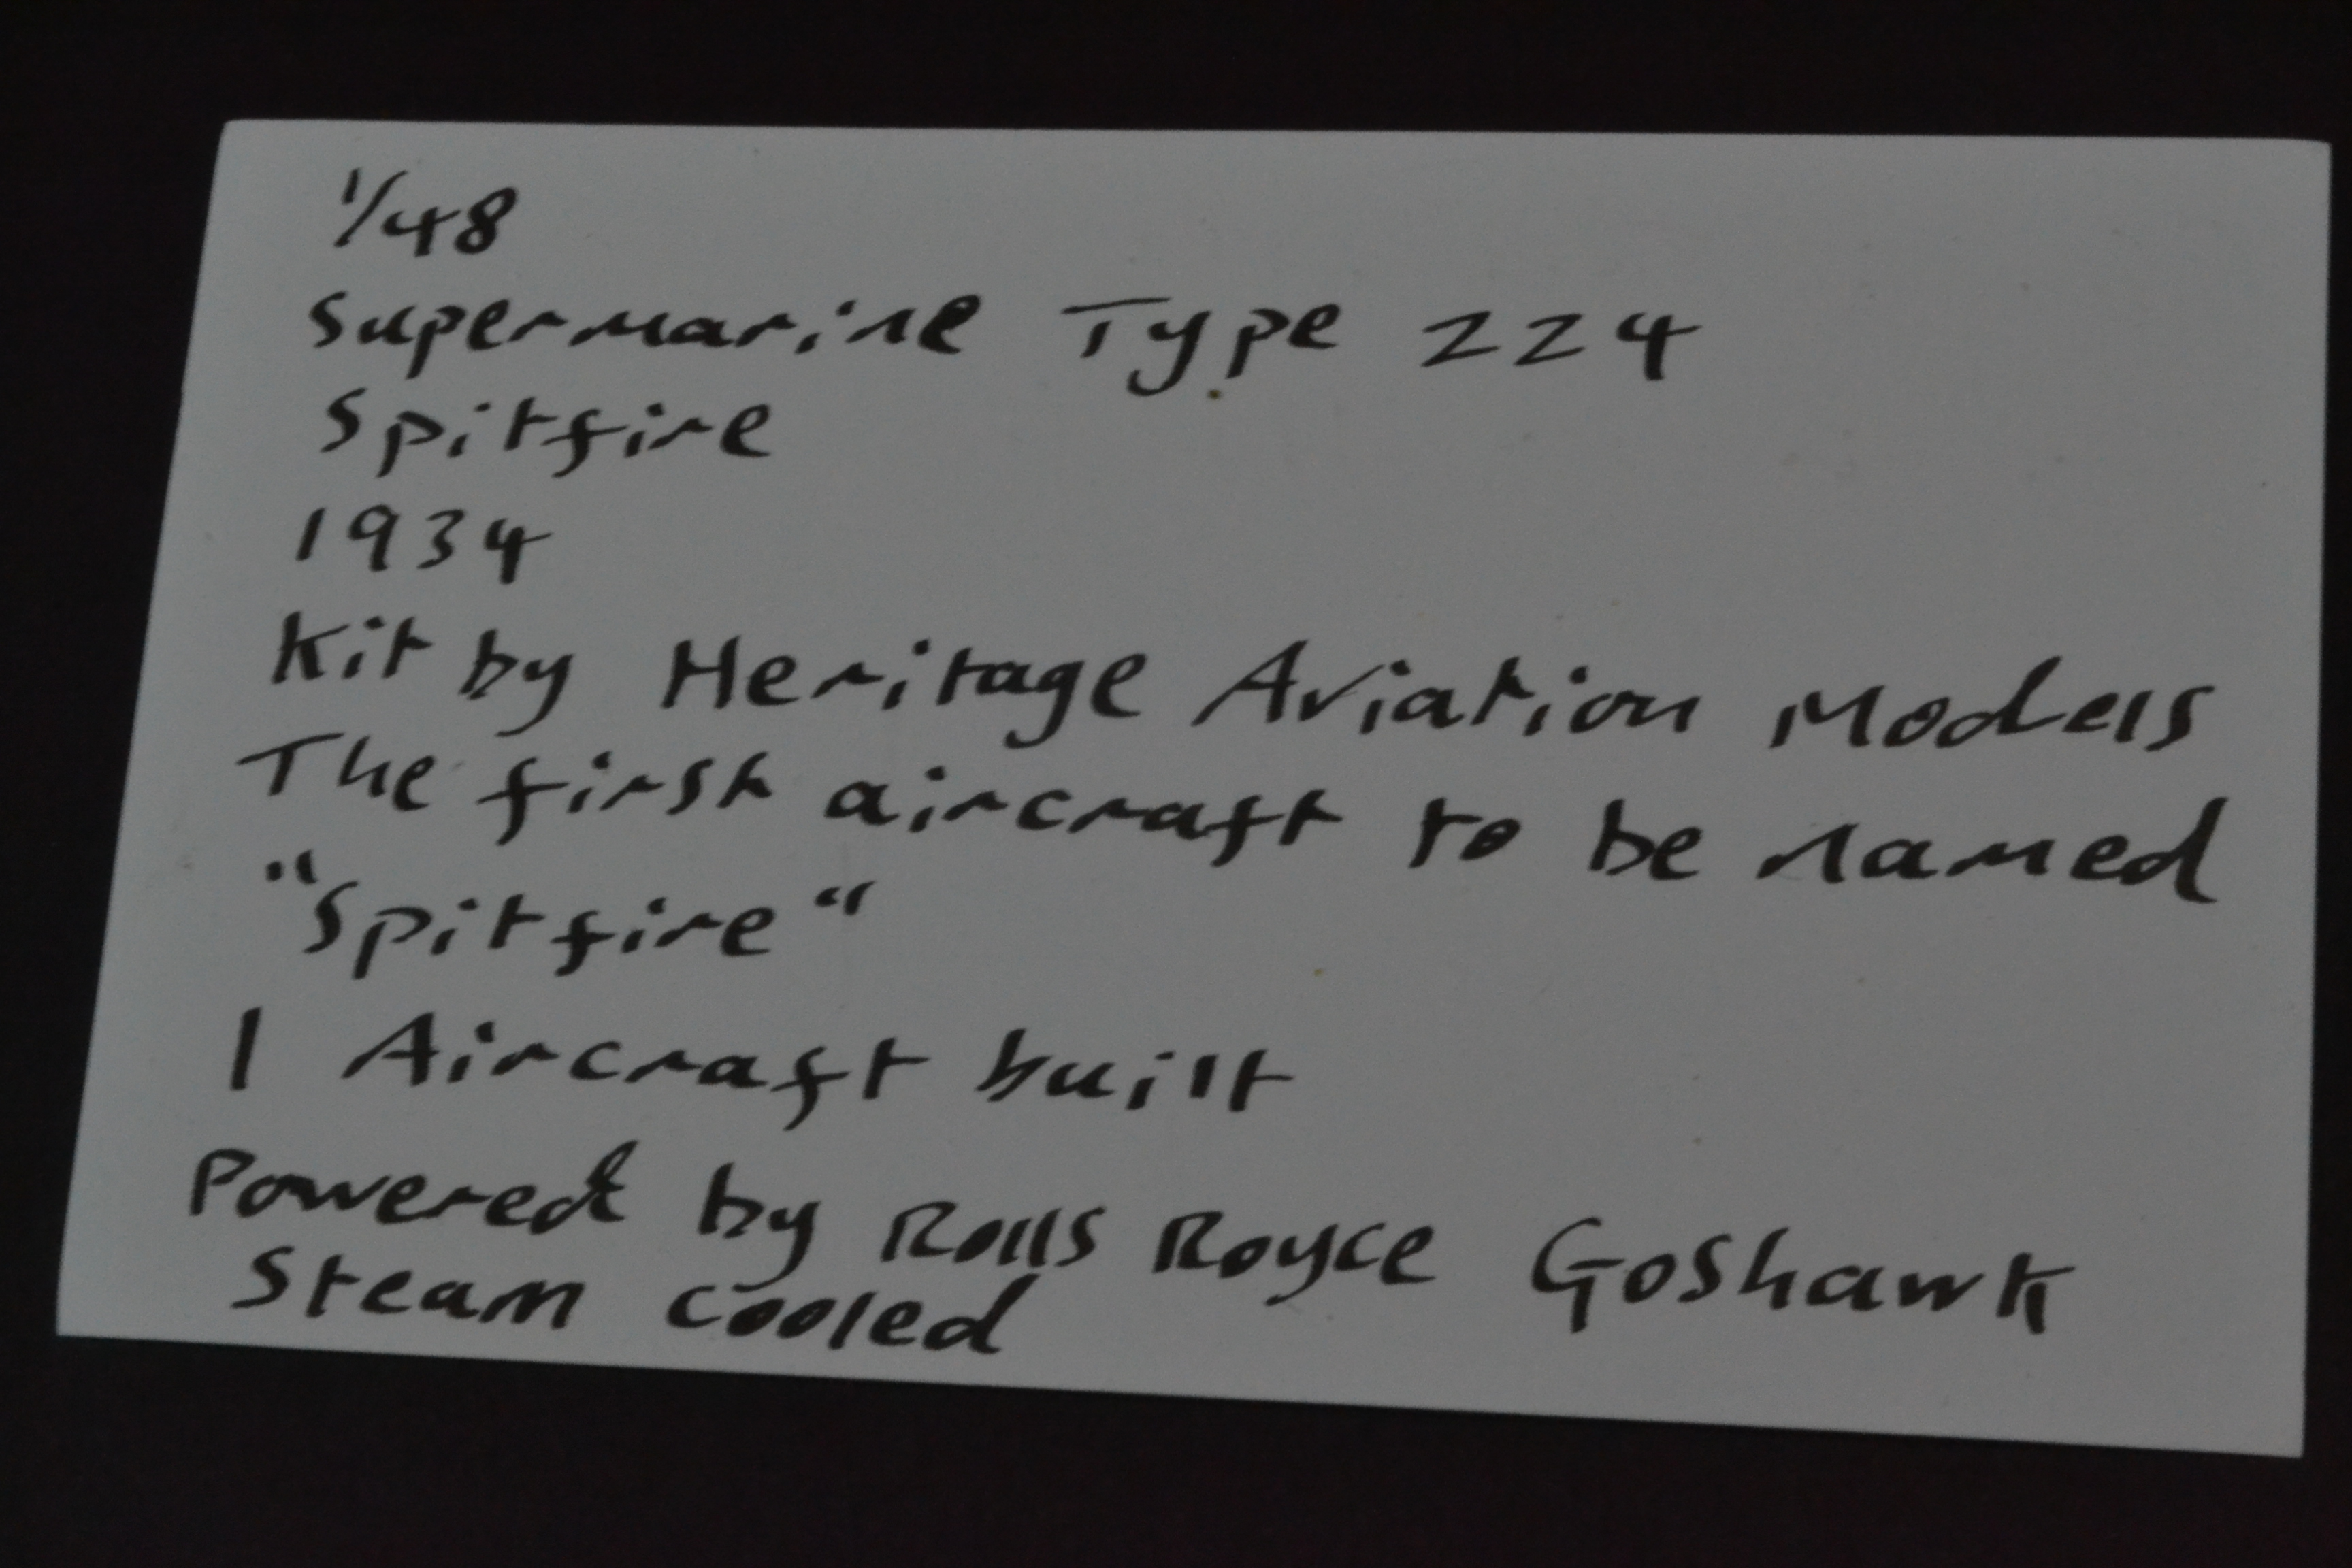 1/48
Supermarine Type 224
Spitfire
1934
Kit by Heritage Aviation Models
The first aircraft to be named
"Spitfire"
1 Aircraft built
Powered by Rolls Royce Goshawk
Steam cooled